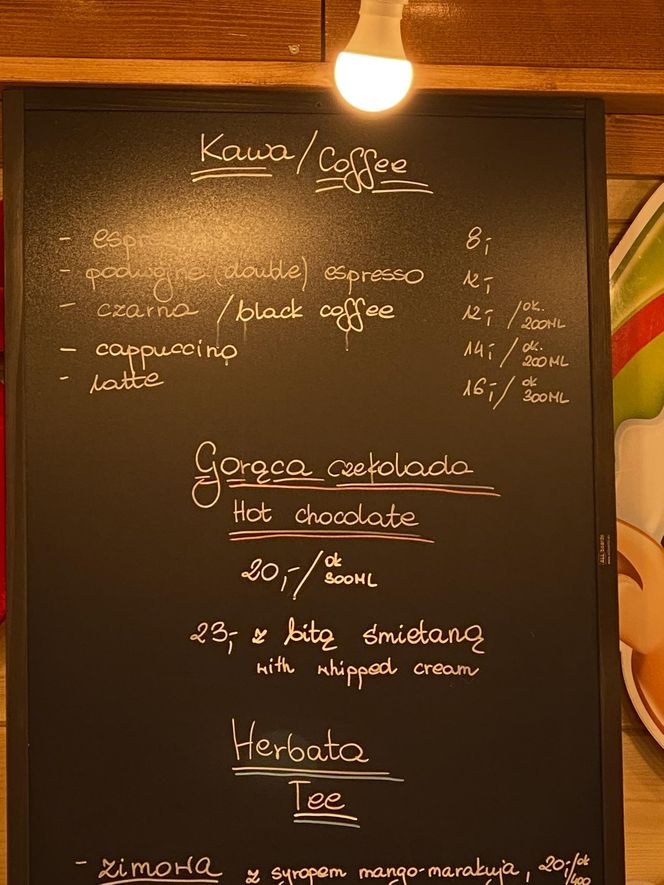 Kawa/Coffee
- espresso 8,-
- podwójne (double) espresso 12,-
- czarna /black coffee 12,- /ok. 200ML
- cappuccino 14,- /ok. 200ML
- latte 16,- /ok 300ML
Gorąca czekolada
Hot chocolate
20,-/ok 300ML
23,- z bitą śmietaną
with whipped cream
Herbata
Tee
- zimowa z syropem mango-marakuja, 20,-/ok 400